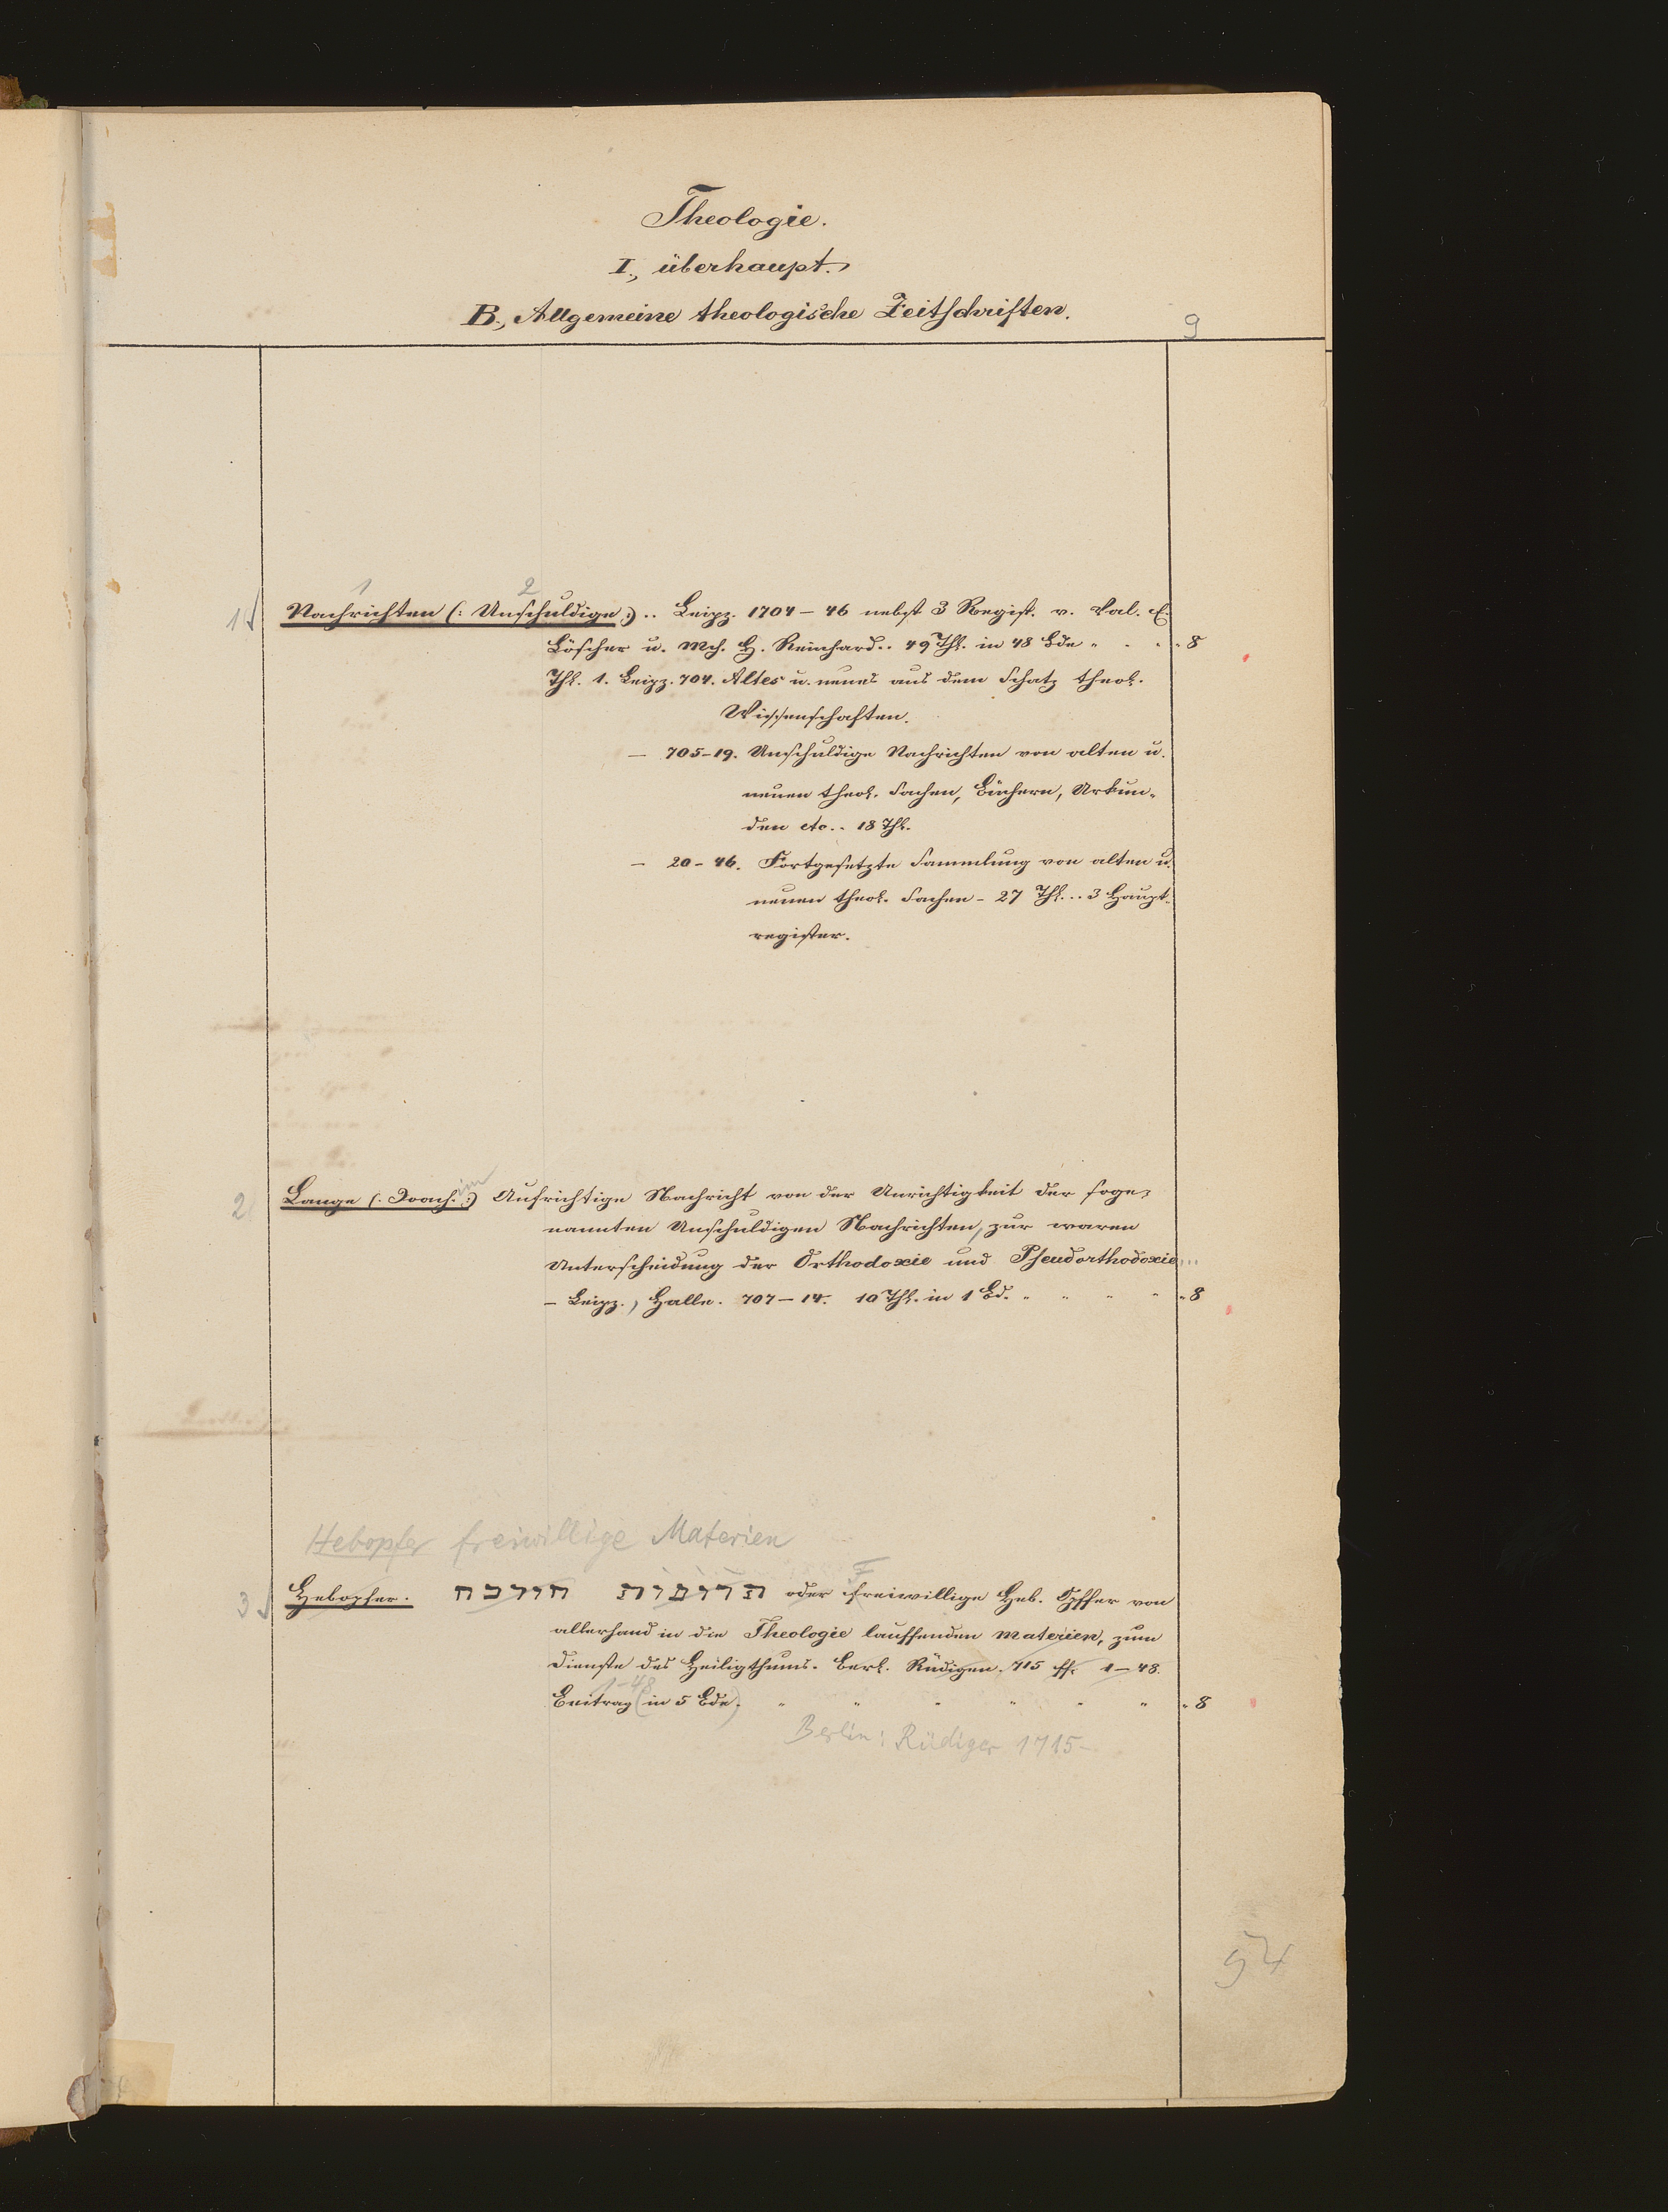 Theologie.
I., überhaupt.
B., Allgemeine theologische Zeitschriften.
9
1 2
1 Nachrichten (: Unschuldige :) .. Leipz. 1704 – 46 nebst 3 Regist. v. Val. E.
Löscher u. Mch. H. Reinhard.. 49 Thl. in 48 Bde " 8
Thl. 1. Leipz. 704. Altes u. neues aus dem Schatz theol.
Wissenschaften.
— 705–19. Unschuldige Nachrichten von alten u.
neuen theol. Sachen, Büchern, Urkun-
den etc.. 18 Thl.
— 20 – 46. Fortgesetzte Sammlung von alten u.
neuen theol. Sachen – 27 Thl... 3 Haupt-
register.
2 Lange (: Joach.im :) Aufrichtige Nachricht von der Unrichtigkeit der soge-
nannten Unschuldigen Nachrichten, zur waren
Unterscheidung der Orthodoxie und Pseudorthodoxie...
– Leipz., Halle. 707 – 14. 10 Thl. in 1 Bd. " " " " 8
Hebopfer freiwillige Materien
3 Hebopfer. תרומות oder freiwillige Heb. Opffer von
allerhand in die Theologie lauffenden materien, zum
Dienste des Heiligthums. Berl. Rüdigen. 715 ff. 1–48.
1–48
Beitrag (in 5 Bde.) " " " " " " 8
Berlin: Rüdiger 1715–
54